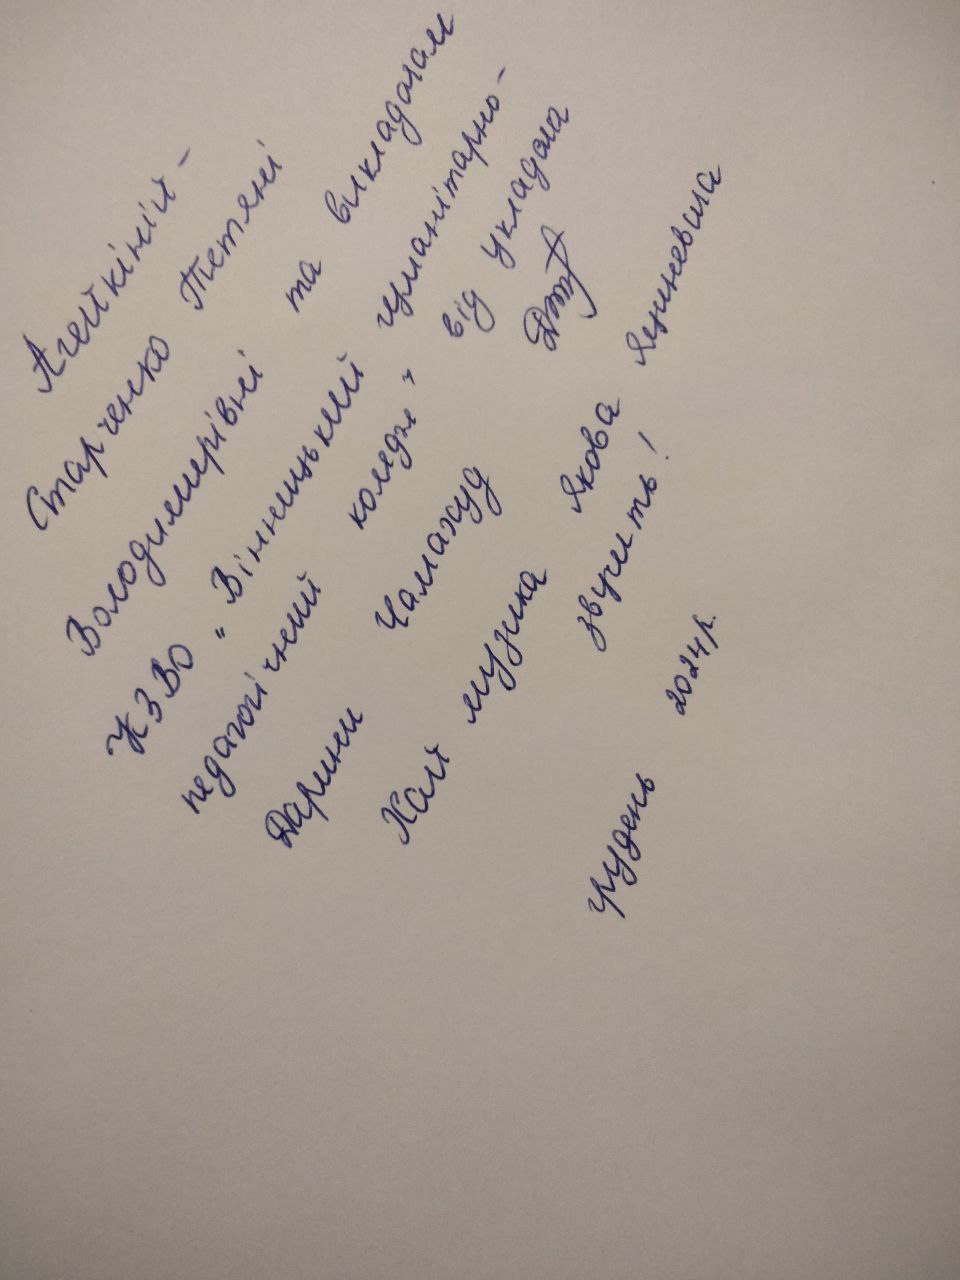 Агейкіній-
Старченко Тетяні
Володимирівні та викладачам
КЗВО "Вінницький гуманітарно-
педагогічний коледж" від укладача
Дарини Чамахуд
Хай музика Якова Яциневича
звучить!
грудень 2024р.